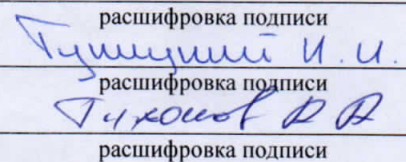 расшифровка подписи
И. И.
расшифровка подписи
Тихонов
расшифровка подписи